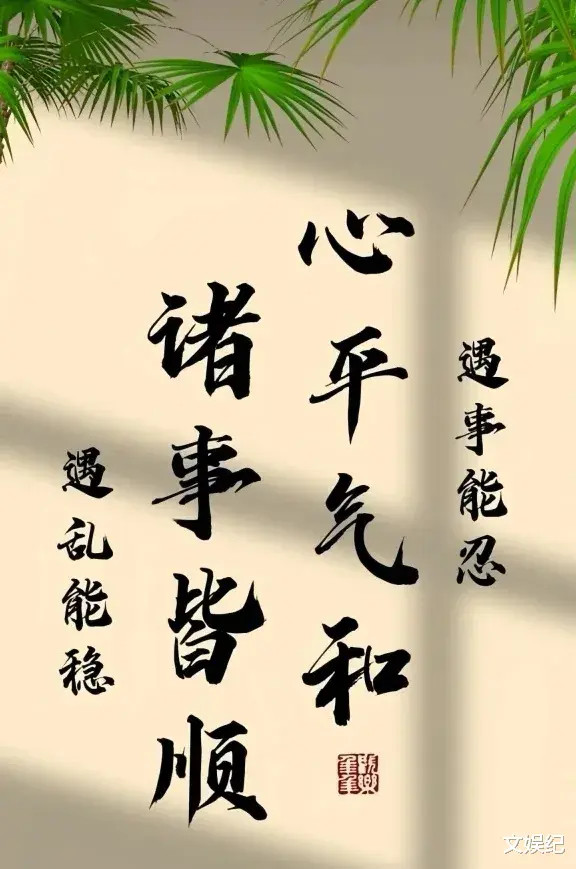 遇事能忍
心平气和
诸事皆顺
遇乱能稳
文娱纪